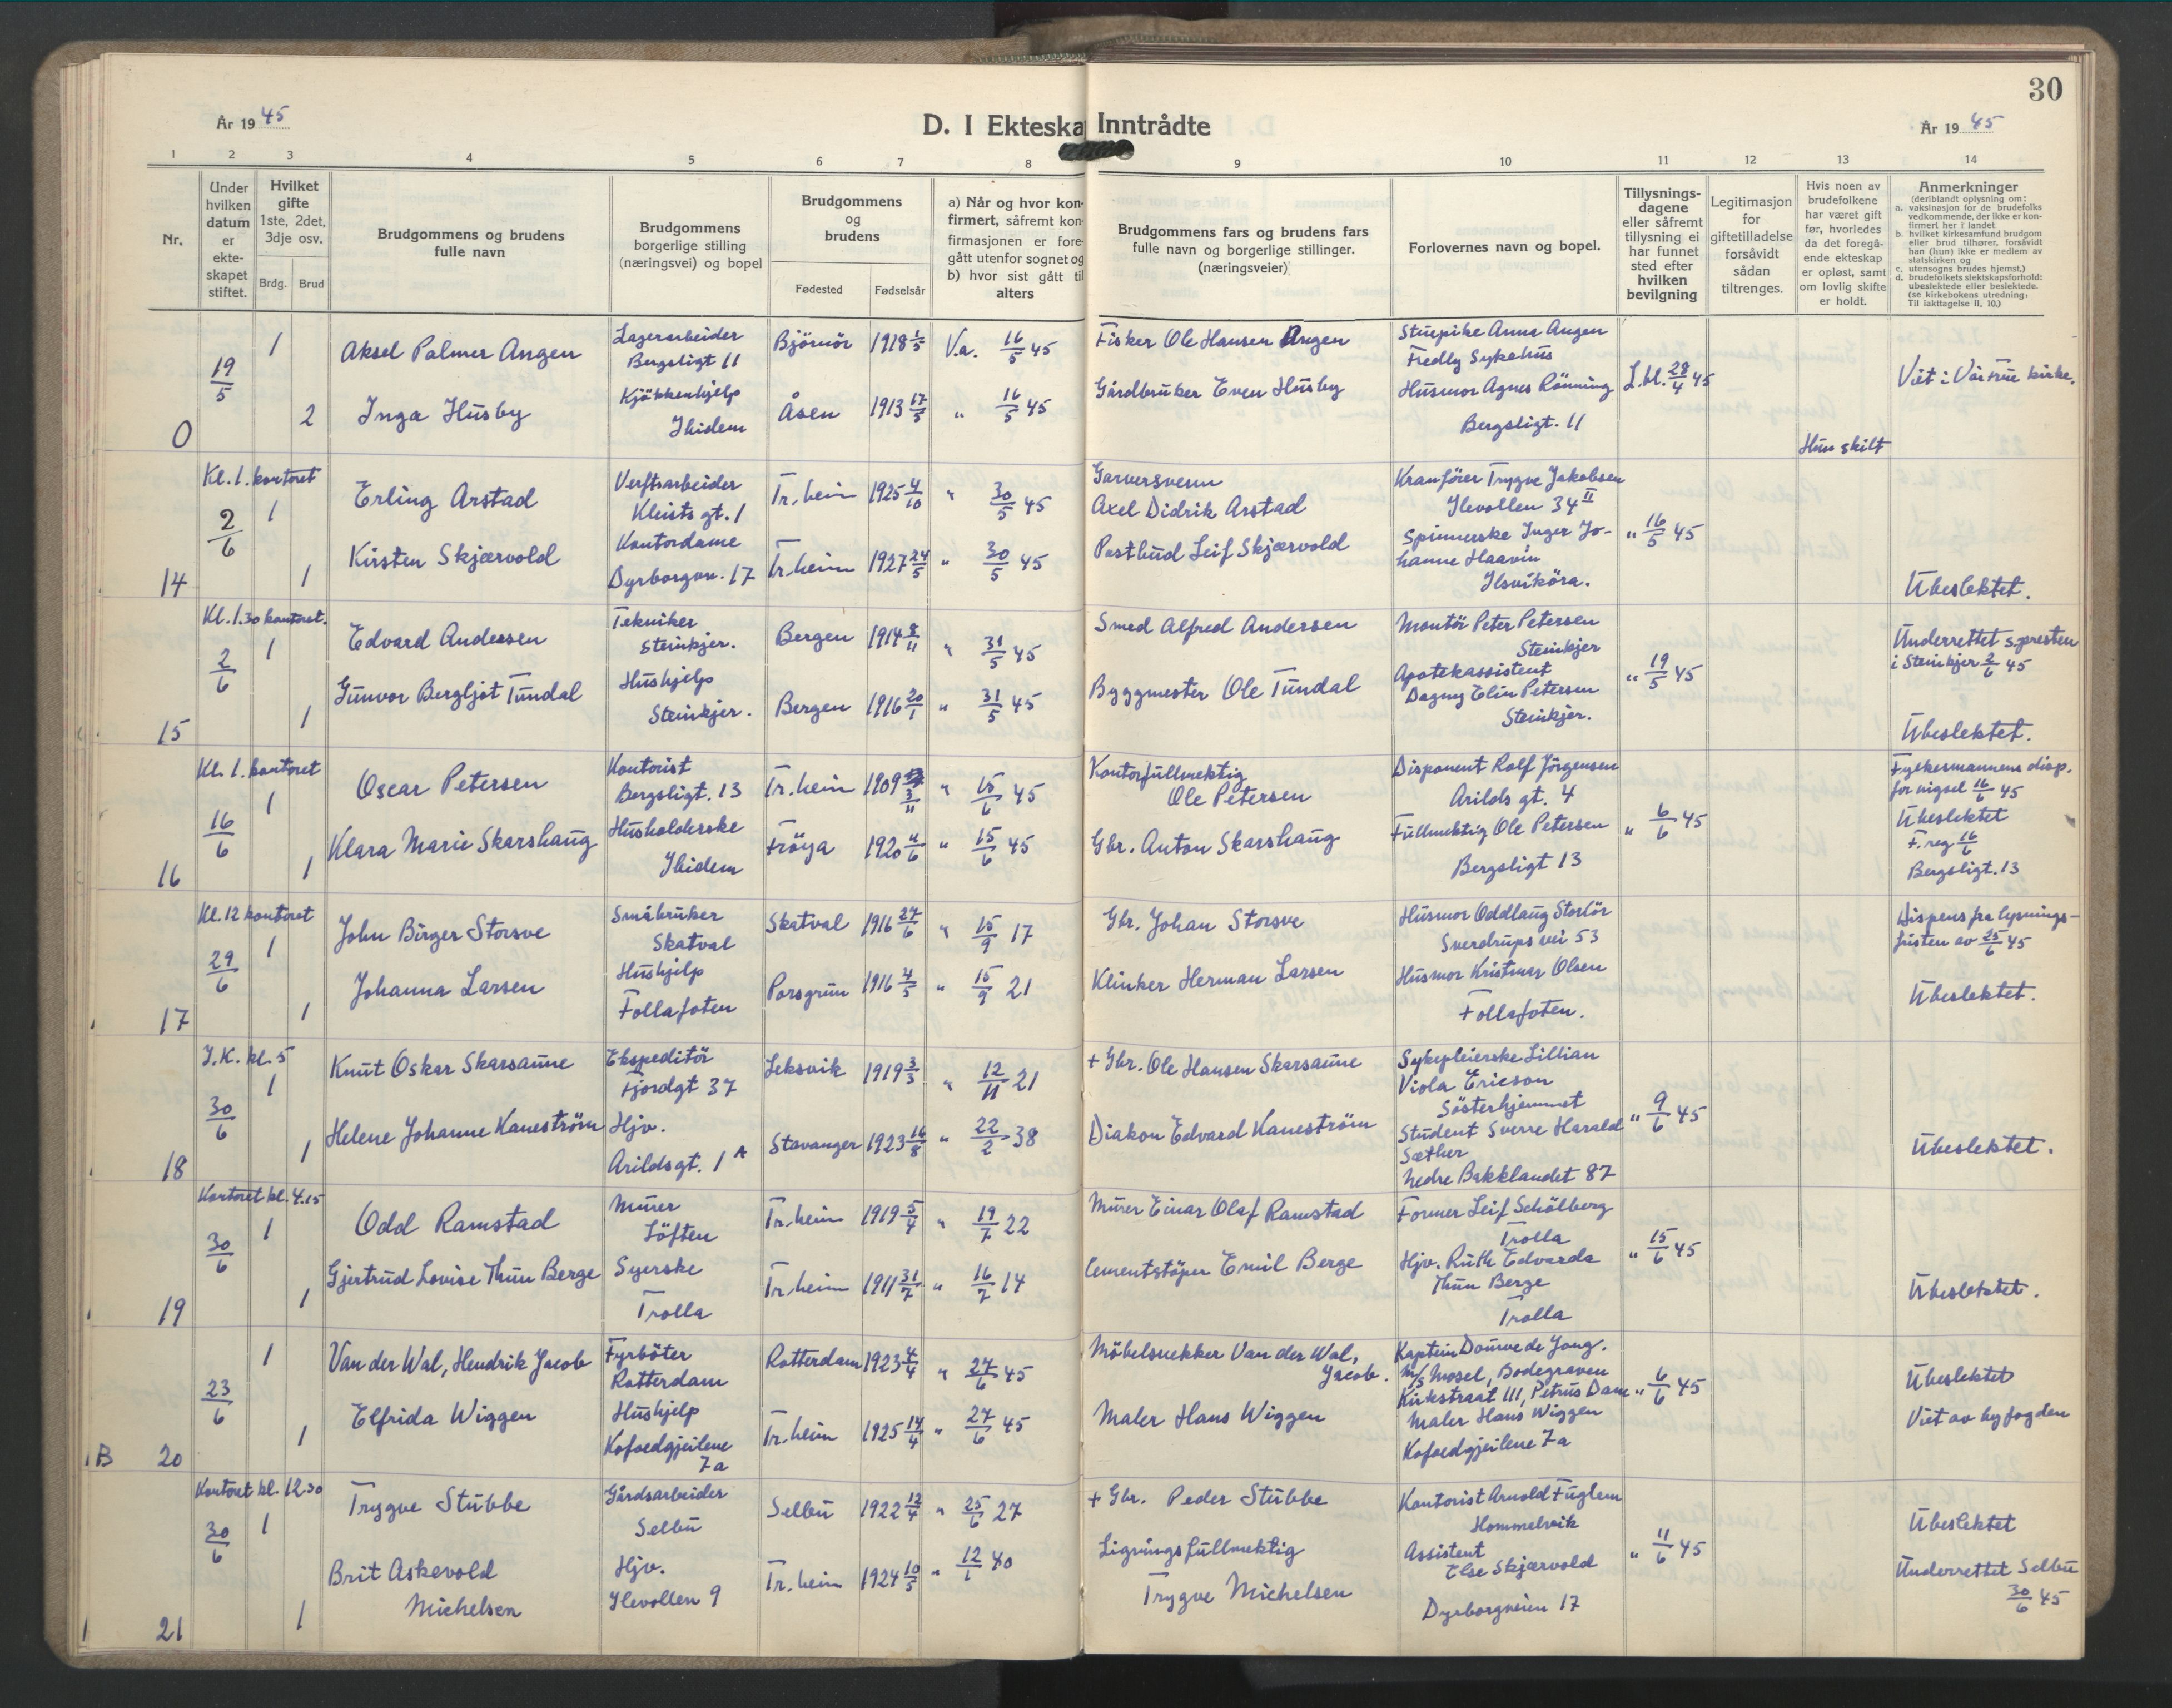 30
År 1945
D. I Ekteska Inntrådte
År 1945
1 2 3 4 5 6 7 8 9 10 11 12 13 14
Nr.
Under hvilken datum er ekte- skapet stiftet.
Hvilket gifte 1ste, 2det, 3dje osv.
Brdg. Brud
Brudgommens og brudens fulle navn
Brudgommens borgerlige stilling (næringsvei) og bopel
Brudgommens og brudens
Fødested Fødselsår
a) Når og hvor kon-
firmert, såfremt kon-
firmasjonen er fore-
gått utenfor sognet og
b) hvor sist gått til
alters
Brudgommens fars og brudens fars
fulle navn og borgerlige stillinger.
(næringsveier)
Forlovernes navn og bopel.
Tillysnings-
dagene
eller såfremt
tillysning ei
har funnet
sted efter
hvilken
bevilgning
Legitimasjon
for
giftetilladelse
forsåvidt
sådan
tiltrenges.
Hvis noen av
brudefolkene
har været gift
før, hvorledes
da det foregå-
ende ekteskap
er opløst, samt
om lovlig skifte
er holdt.
Anmerkninger
(deriblandt oplysning om:
a. vaksinasjon for de brudefolks
vedkommende, der ikke er kon-
firmert her i landet
b. hvilket kirkesamfund brudgom
eller brud tilhører, forsåvidt
han (hun) ikke er medlem av
statskirken og
c. utensogns brudes hjemst.)
d. brudefolkets slektskapsforhold:
ubeslektede eller beslektede.
(se kirkebokens utredning:
Til iakttagelse II, 10.)
0
19/5
1 Aksel Palmer Angen Lagerarbeider Bergsligt 11 Björnör 1918 1/5 V.a. 16/5 45 Fisker Ole Hansen Angen
2 Inga Husby Kjøkkenhjelp Ibidem Åsen 1913 17/5 " 16/5 45 Gårdbruker Even Husby
Stuepike Anna Angen
Fredly Sykehus
Husmor Agnes Rönning
Bergsligt. 11
L.bl. 28/4 45
Hun skilt
Viet i Vår frue kirke.
14
Kl. 1. kontoret
2/6
1 Erling Arstad Verftsarbeider Kleists gt. 1 Tr.heim 1925 4/10 " 30/5 45 Garversvenn Axel Didrik Arstad
1 Kirsten Skjærvold Kontordame Dyrborgvn. 17 Tr.heim 1927 24/5 " 30/5 45 Postbud Leif Skjærvold
Kranfører Trygve Jakobsen
Ilevollen 34 II
Spinnerske Inger Jo-
hanne Haavin
Ilsviköra.
" 16/5 45
Ubeslektet.
15
Kl. 1.30 kontoret.
2/6
1 Edvard Andersen Tekniker Steinkjer. Bergen 1914 8/11 " 31/5 45 Smed Alfred Andersen
1 Gunvor Bergljot Tundal Hushjelp Steinkjer. Bergen 1916 20/1 " 31/5 45 Byggmester Ole Tundal
Montör Peter Petersen
Steinkjer
Apotekassistent
Dagny Elin Petersen
Steinkjer.
" 19/5 45
Underrettet s.presten
i Steinkjer 2/6 45
Ubeslektet.
16
Kl. 1. kontoret
16/6
1 Oscar Petersen Kontorist Bergsligt. 13 Tr.heim 1909 3/11 " 15/6 45 Kontorfullmektig Ole Petersen
1 Klara Marie Skarshaug Husholderske Ibidem Fröya 1920 4/6 " 15/6 45 Gbr. Anton Skarshaug
Disponent Rolf Jörgensen
Arilds gt. 4
Fullmektig Ole Petersen
Bergsligt 13
" 6/6 45
Fylkesmannens disp.
for vigsel 16/6 45
Ubeslektet
F. reg 16/6
Bergsligt. 13
17
Kl. 12 kontoret
29/6
1 John Birger Storsve Småbruker Skatval Skatval 1916 27/6 " 15/9 17 Gbr. Johan Storsve
1 Johanna Larsen Hushjelp Follafoten Porsgrun 1916 4/5 " 15/9 21 Klinker Herman Larsen
Husmor Oddlaug Storlör
Sverdrups vei 53
Husmor Kristmar Olsen
Follafoten.
Dispens fra lysnings-
fristen av 25/6 45
Ubeslektet.
18
I.K. kl. 5
30/6
1 Knut Oskar Skarsaune Ekspeditör Fjordgt 37 Leksvik 1919 3/3 " 12/11 21 + Gbr. Ole Hansen Skarsaune
1 Helene Johanne Kaneström Hjv. Arildsgt. 1 A Stavanger 1923 16/8 " 22/2 38 Diakon Edvard Kaneström
Sykepleierske Lillian
Viola Ericson
Sösterhjemmet
Student Sverre Harald
Sæther
Nedre Bakklandet 87
" 9/6 45
Ubeslektet.
19
Kontoret kl. 4.15
30/6
1 Odd Ramstad Murer Löften Tr.heim 1919 5/4 " 19/7 22 Murer Einar Olaf Ramstad
1 Gjertrud Lovise Thun Berge Syerske Trolla Tr.heim 1911 31/7 " 16/7 14 Cementstöper Emil Berge
Former Leif Schölberg
Trolla
Hjv. Ruth Edvarda
Thun Berge
Trolla
" 15/6 45
Ubeslektet.
B 20
23/6
1 Van der Wal, Hendrik Jacob Fyrböter Rotterdam Rotterdam 1923 4/4 " 27/6 45 Möbelsnekker Van der Wal, Jacob.
1 Elfrida Wiggen Hushjelp Kofoedgjeilene 7a Tr.heim 1925 14/4 " 27/6 45 Maler Hans Wiggen
Kaptein Douwe de Jong.
M/S Mosel, Bodegraven
Kirkstraat 111, Petrus Dam
Maler Hans Wiggen
Kofoedgjeilene 7a
" 6/6 45
Ubeslektet
Viet av byfogden
21
Kontoret kl. 12.30
30/6
1 Trygve Stubbe Gårdsarbeider Selbu Selbu 1922 12/4 " 25/6 27 + Gbr. Peder Stubbe
1 Brit Askevold Michelsen Hjv. Ilevollen 9 Tr.heim 1924 10/5 " 12/1 40 Ligningsfullmektig Trygve Michelsen
Kontorist Arnold Fuglem
Hommelvik
Assistent
Else Skjærvold
Dyrborgveien 17
" 11/6 45
Ubeslektet
Underrettet Selbu
30/6 45